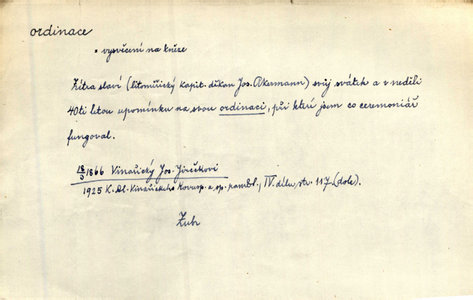 ordinace
• vysvěcení na kněze
Zítra slaví (litoměřický kapit. děkan Jos. Akermann) svůj svátek a v neděli
40ti letou upomínku na svou ordinaci, při které jsem co ceremoniář
fungoval.
18/3 1866 Vinařický Jos. Jirečkovi
1925 K. Al. Vinařického Korresp. a sp. pamětní, IV. dílu, str. 117 (dole).
Zubr